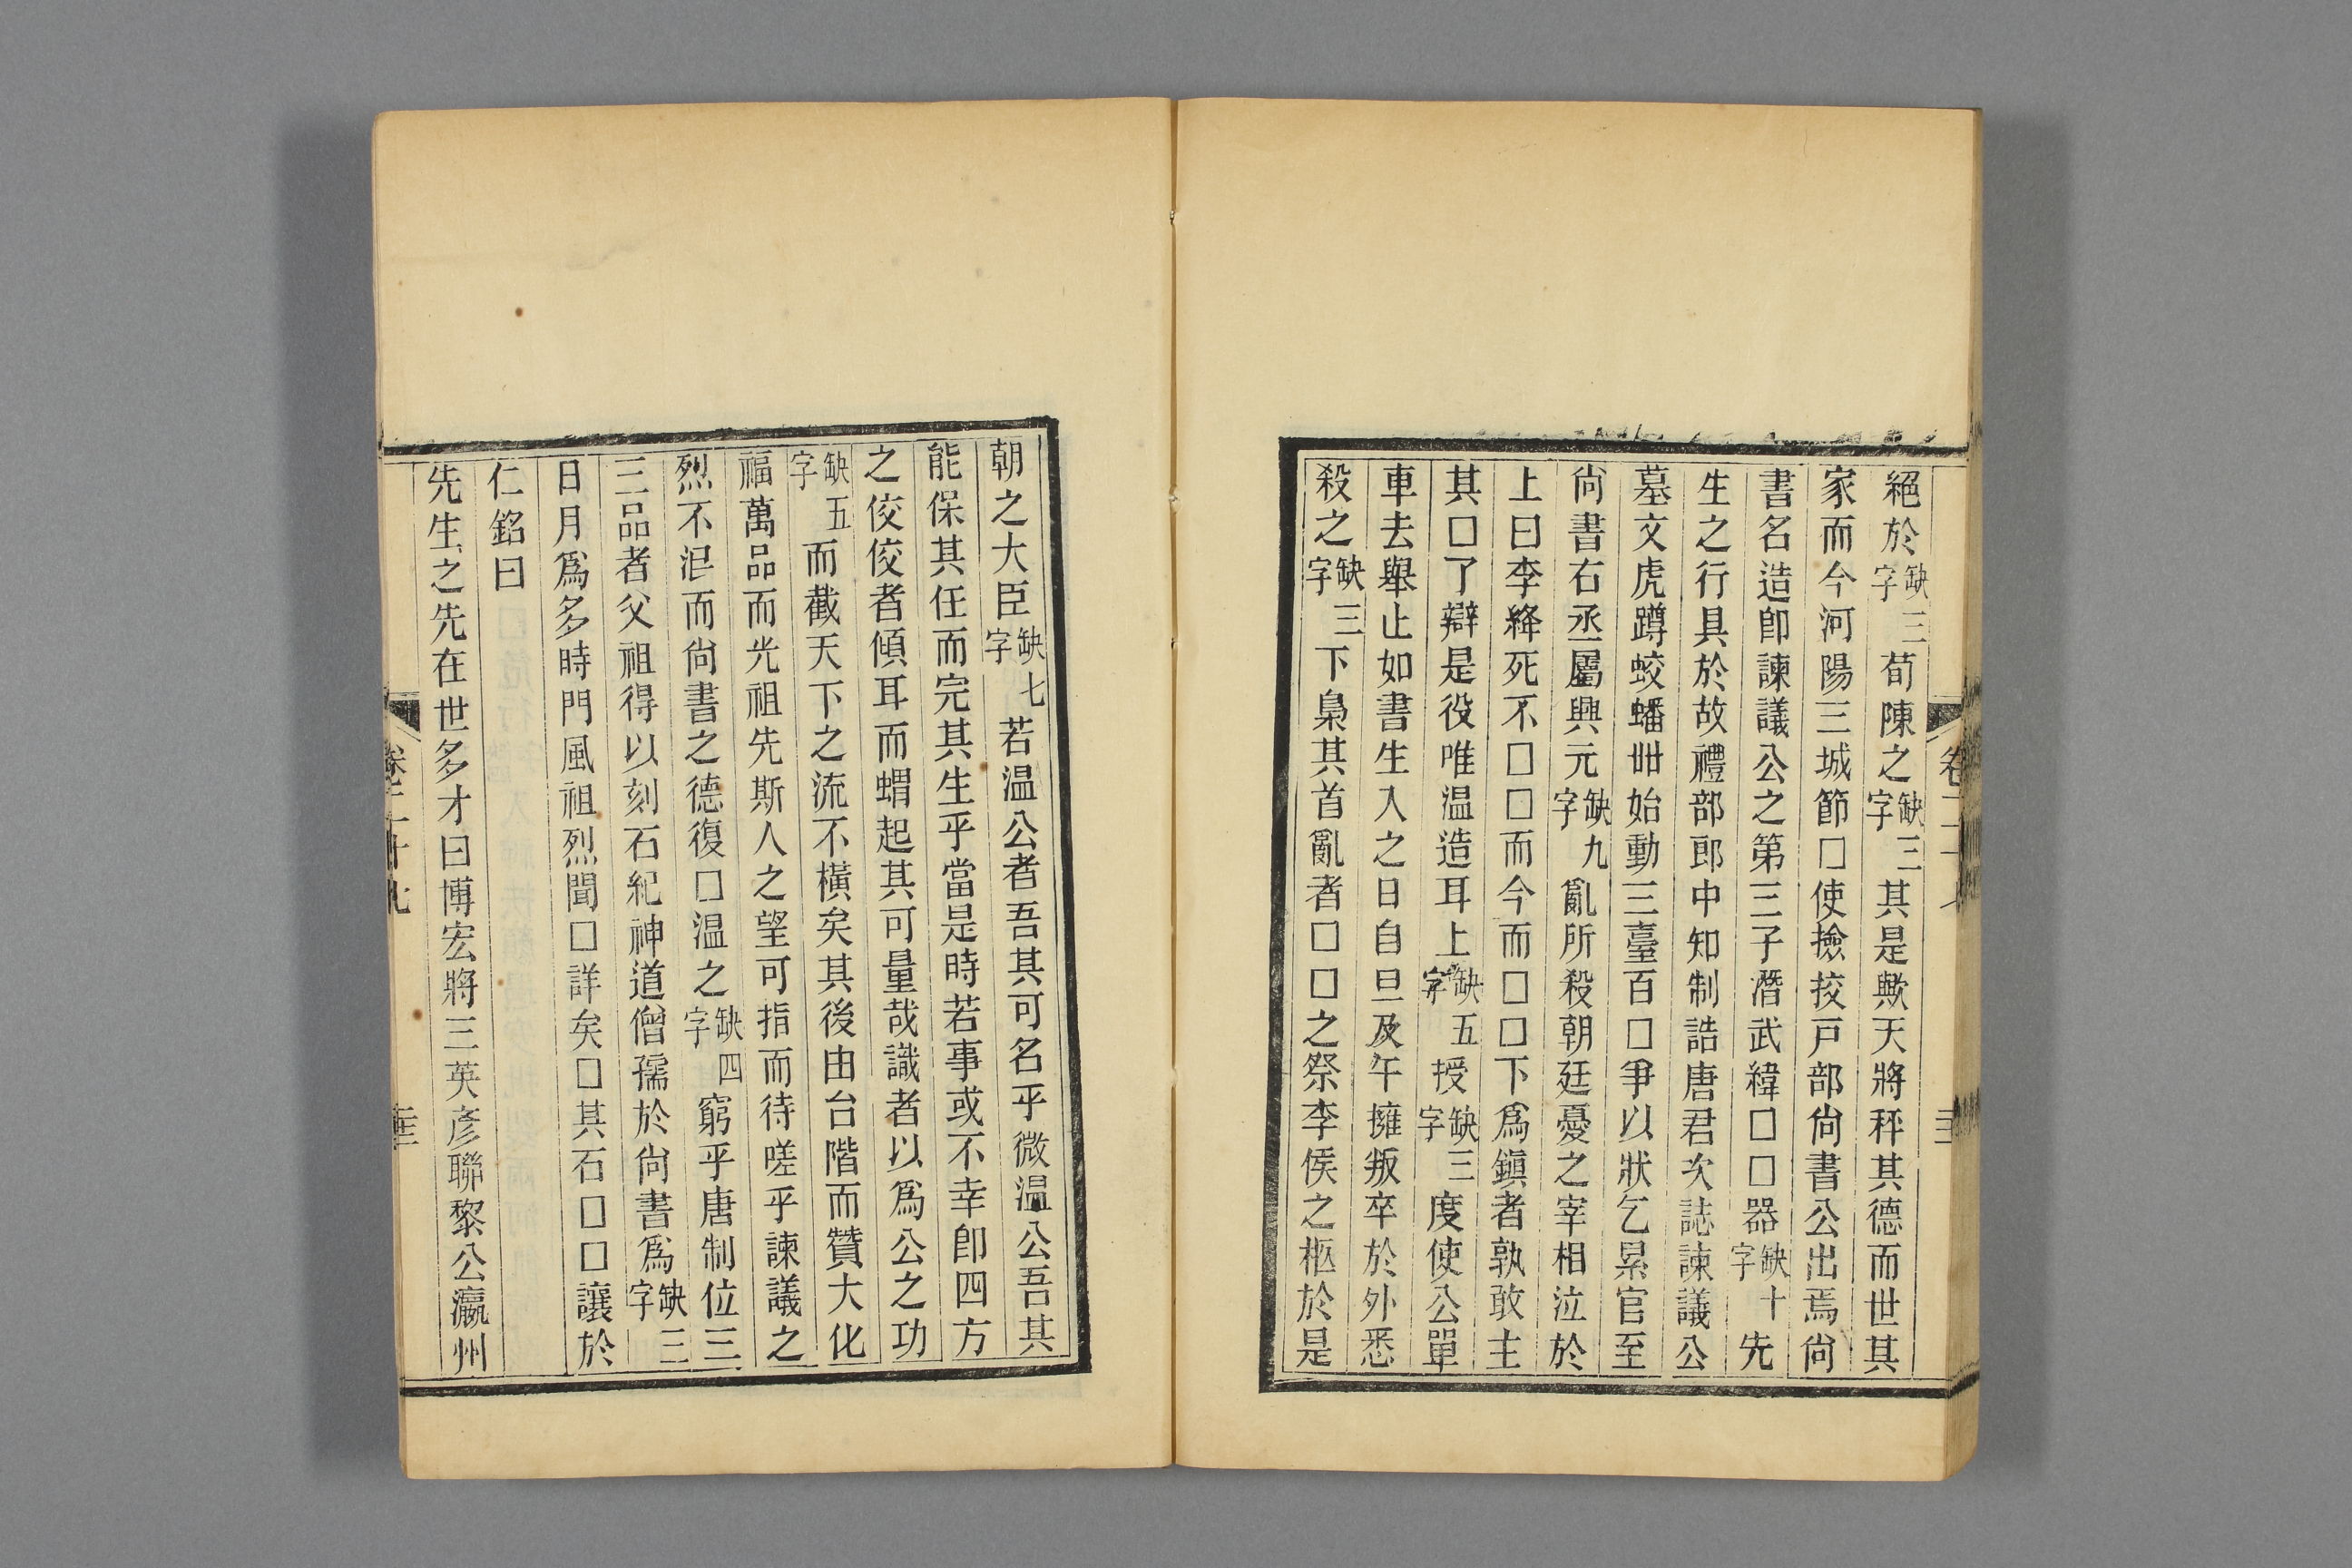 絕於缺三字荀陳之缺三字其是歟天將秤其德而世其
家而今河陽三城節□使撿挍戸部尙書公出焉尙
書名造卽諫議公之第三子濳武緯□□器缺十字先
生之行具於故禮部郎中知制誥唐君次誌諫議公
墓文虎蹲蛟蟠丗始動三臺百□爭以狀乞累官至
尙書右丞屬興元缺九字亂所殺朝廷憂之宰相泣於
上曰李絳死不□□而今而□□下爲鎭者孰敢主
其□了辯是役唯温造耳上缺五字授缺三字度使公單
車去舉止如書生入之日自旦及午擁叛卒於外悉
殺之缺三字下梟其首亂者□□之祭李侯之柩於是
朝之大臣缺七字若温公者吾其可名乎微温公吾其
能保其任而完其生乎當是時若事或不幸卽四方
之佼佼者傾耳而蝟起其可量哉識者以爲公之功
缺五字而截天下之流不橫矣其後由台階而贊大化
福萬品而光祖先斯人之望可指而待嗟乎諫議之
烈不泯而尙書之德復□温之缺四字窮乎唐制位三
三品者父祖得以刻石紀神道僧孺於尙書爲缺三字
日月爲多時門風祖烈聞□詳矣□其石□□讓於
仁銘曰
先生之先在世多才曰博宏將三英彥聯黎公瀛州